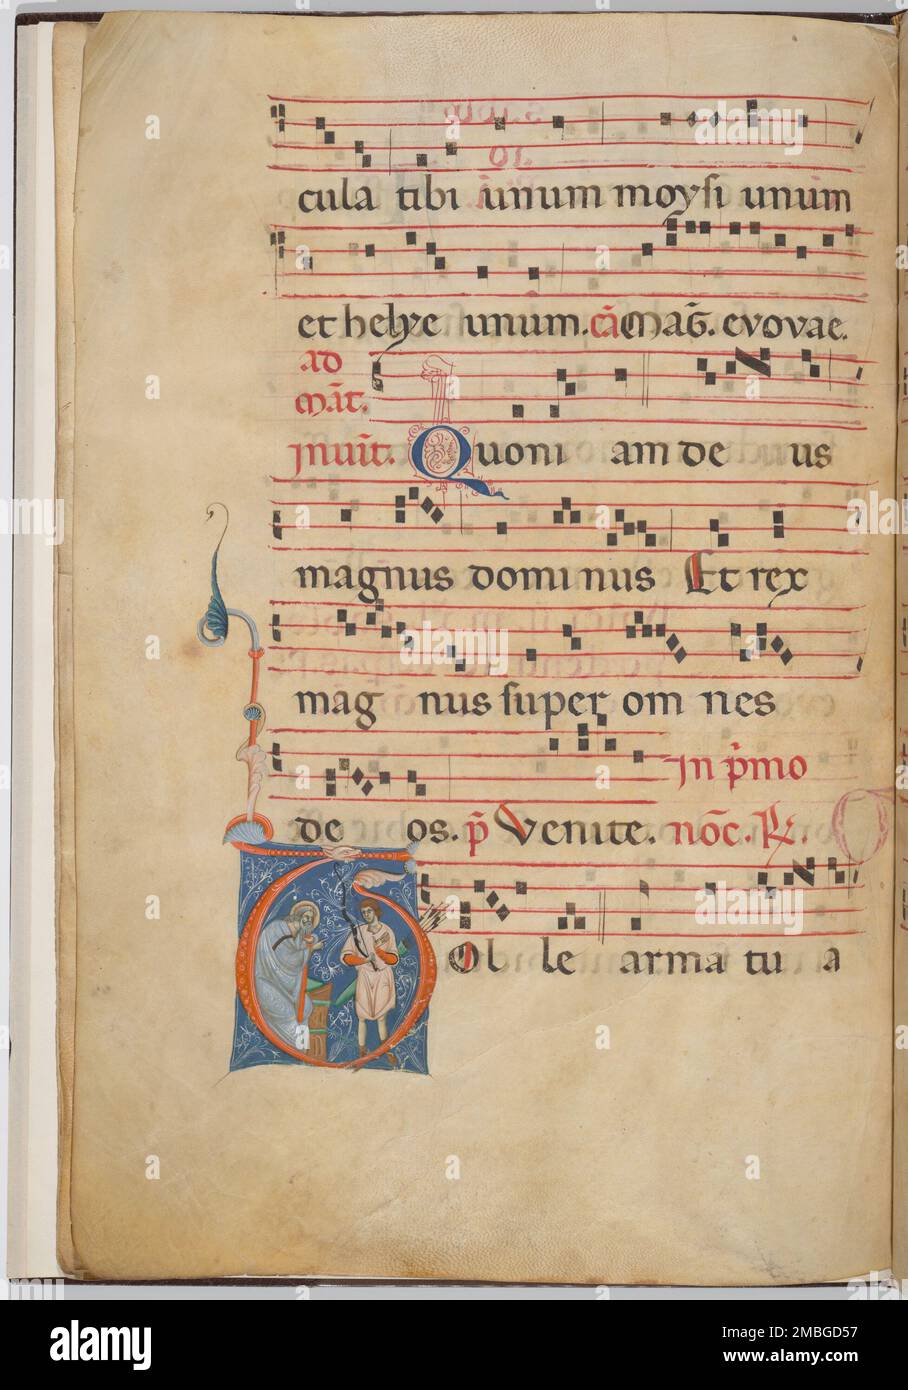 cula tibi unum moysi unum
et helye unum. cā Maḡ. evovae.
ad
māt.
jnuit̄. Quoni am de us
magnus dominus Et rex
mag nus super om nes
de os. p̄ Venite. In p̄mo
noc̄e. ℟.
Tol le arma tu a
a
alamy
Image ID: 2MBGD57
www.alamy.com